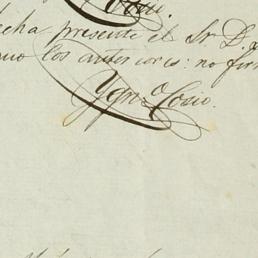 echa presente el Sr. D.
los anteriores: no fir
Ygno. Cosio.